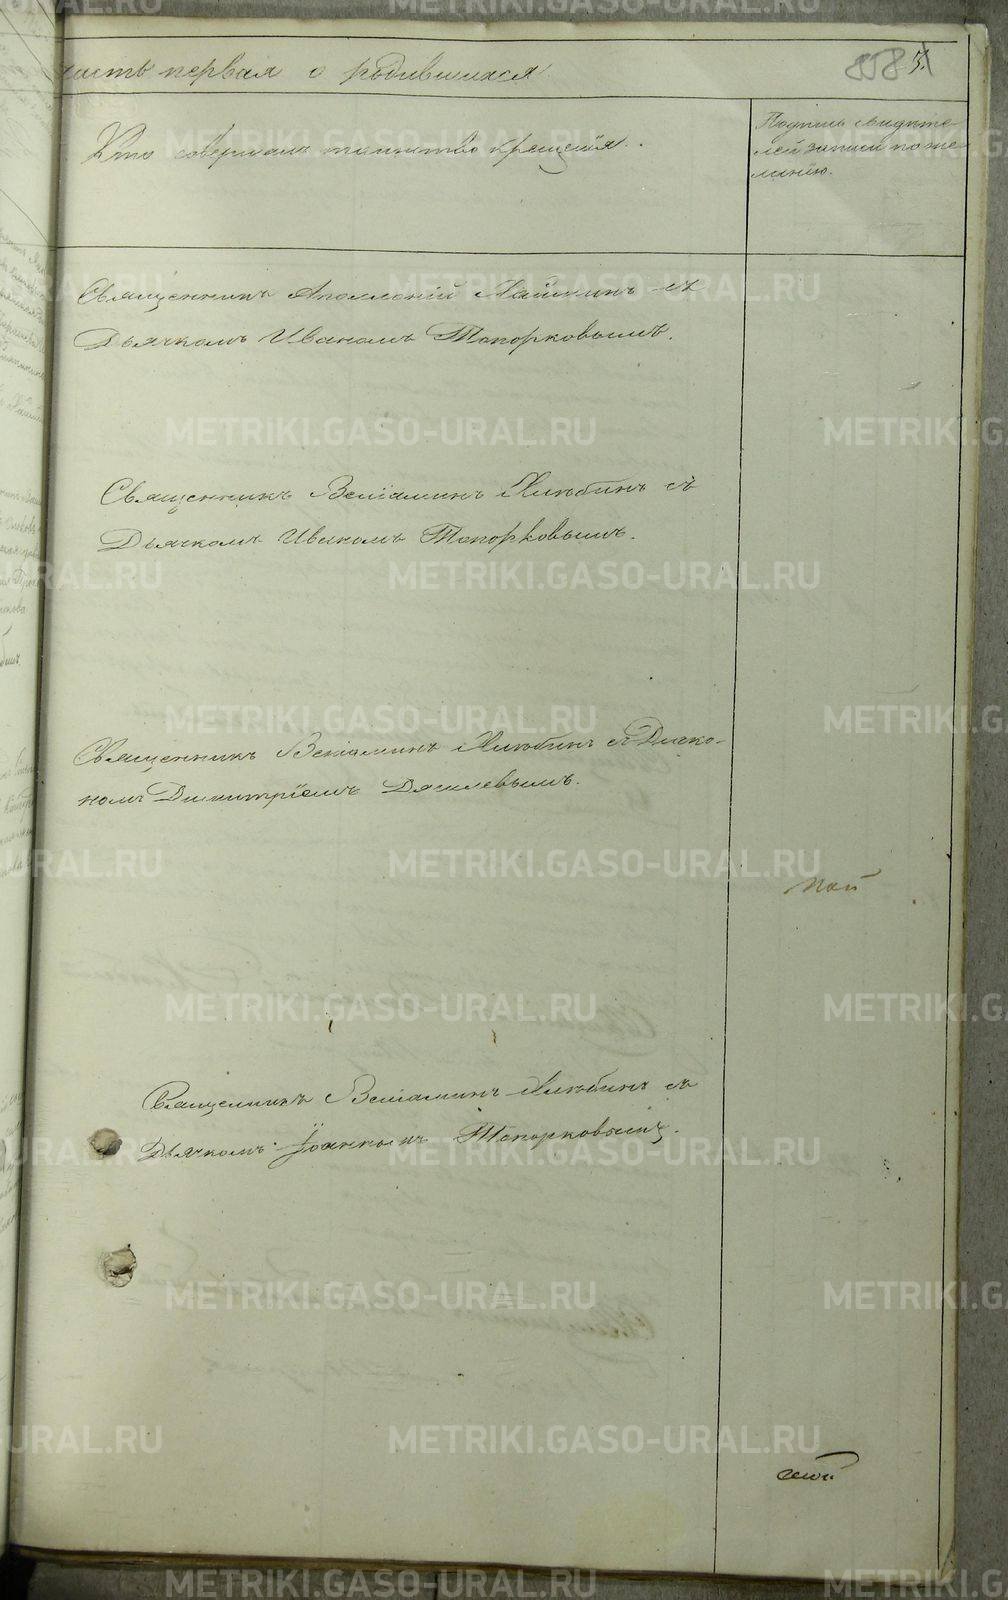 часть первая о родившихся
858
Кто совершалъ таинство крещенія.
Подпись свидѣте-
лей записи по же-
ланію.
Священникъ Аполлоній съ
Дьячкомъ Иваномъ Топорковымъ.
Священникъ Веніаминъ Хлѣбинъ съ
Дьячкомъ Иваномъ Топорковымъ.
Священникъ Веніаминъ Хлѣбинъ съ Диако-
номъ Димитріемъ
Священникъ Веніаминъ Хлѣбинъ съ
Дьячкомъ Іоанномъ Топорковымъ.
METRIKI.GASO-URAL.RU